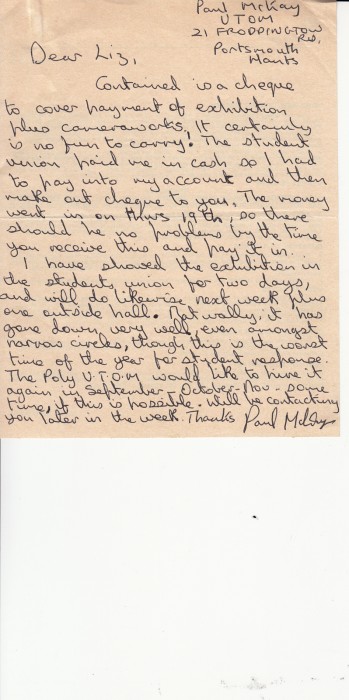 Paul McKay
UTOM
21 FRODDINGTON
RD,
Portsmouth
Hants
Dear Liz,
Contained is a cheque
to cover payment of exhibition
plus cameraworks. It certainly
is no fun to carry! The student
union paid me in cash so I had
to pay into my account and then
make out cheque to you. The money
went in on Thurs 19th, so there
should be no problems by the time
you receive this and pay it in.
I have showed the exhibition in
the students union for two days,
and will do likewise next week plus
one outside hall. Naturally, it has
gone down very well, even amongst
narrow circles, though this is the worst
time of the year for student response.
The Poly U.T.O.M would like to hire it
again in September - October - Nov - some
time, if this is possible. Will be contacting
you later in the week. Thanks Paul McKay